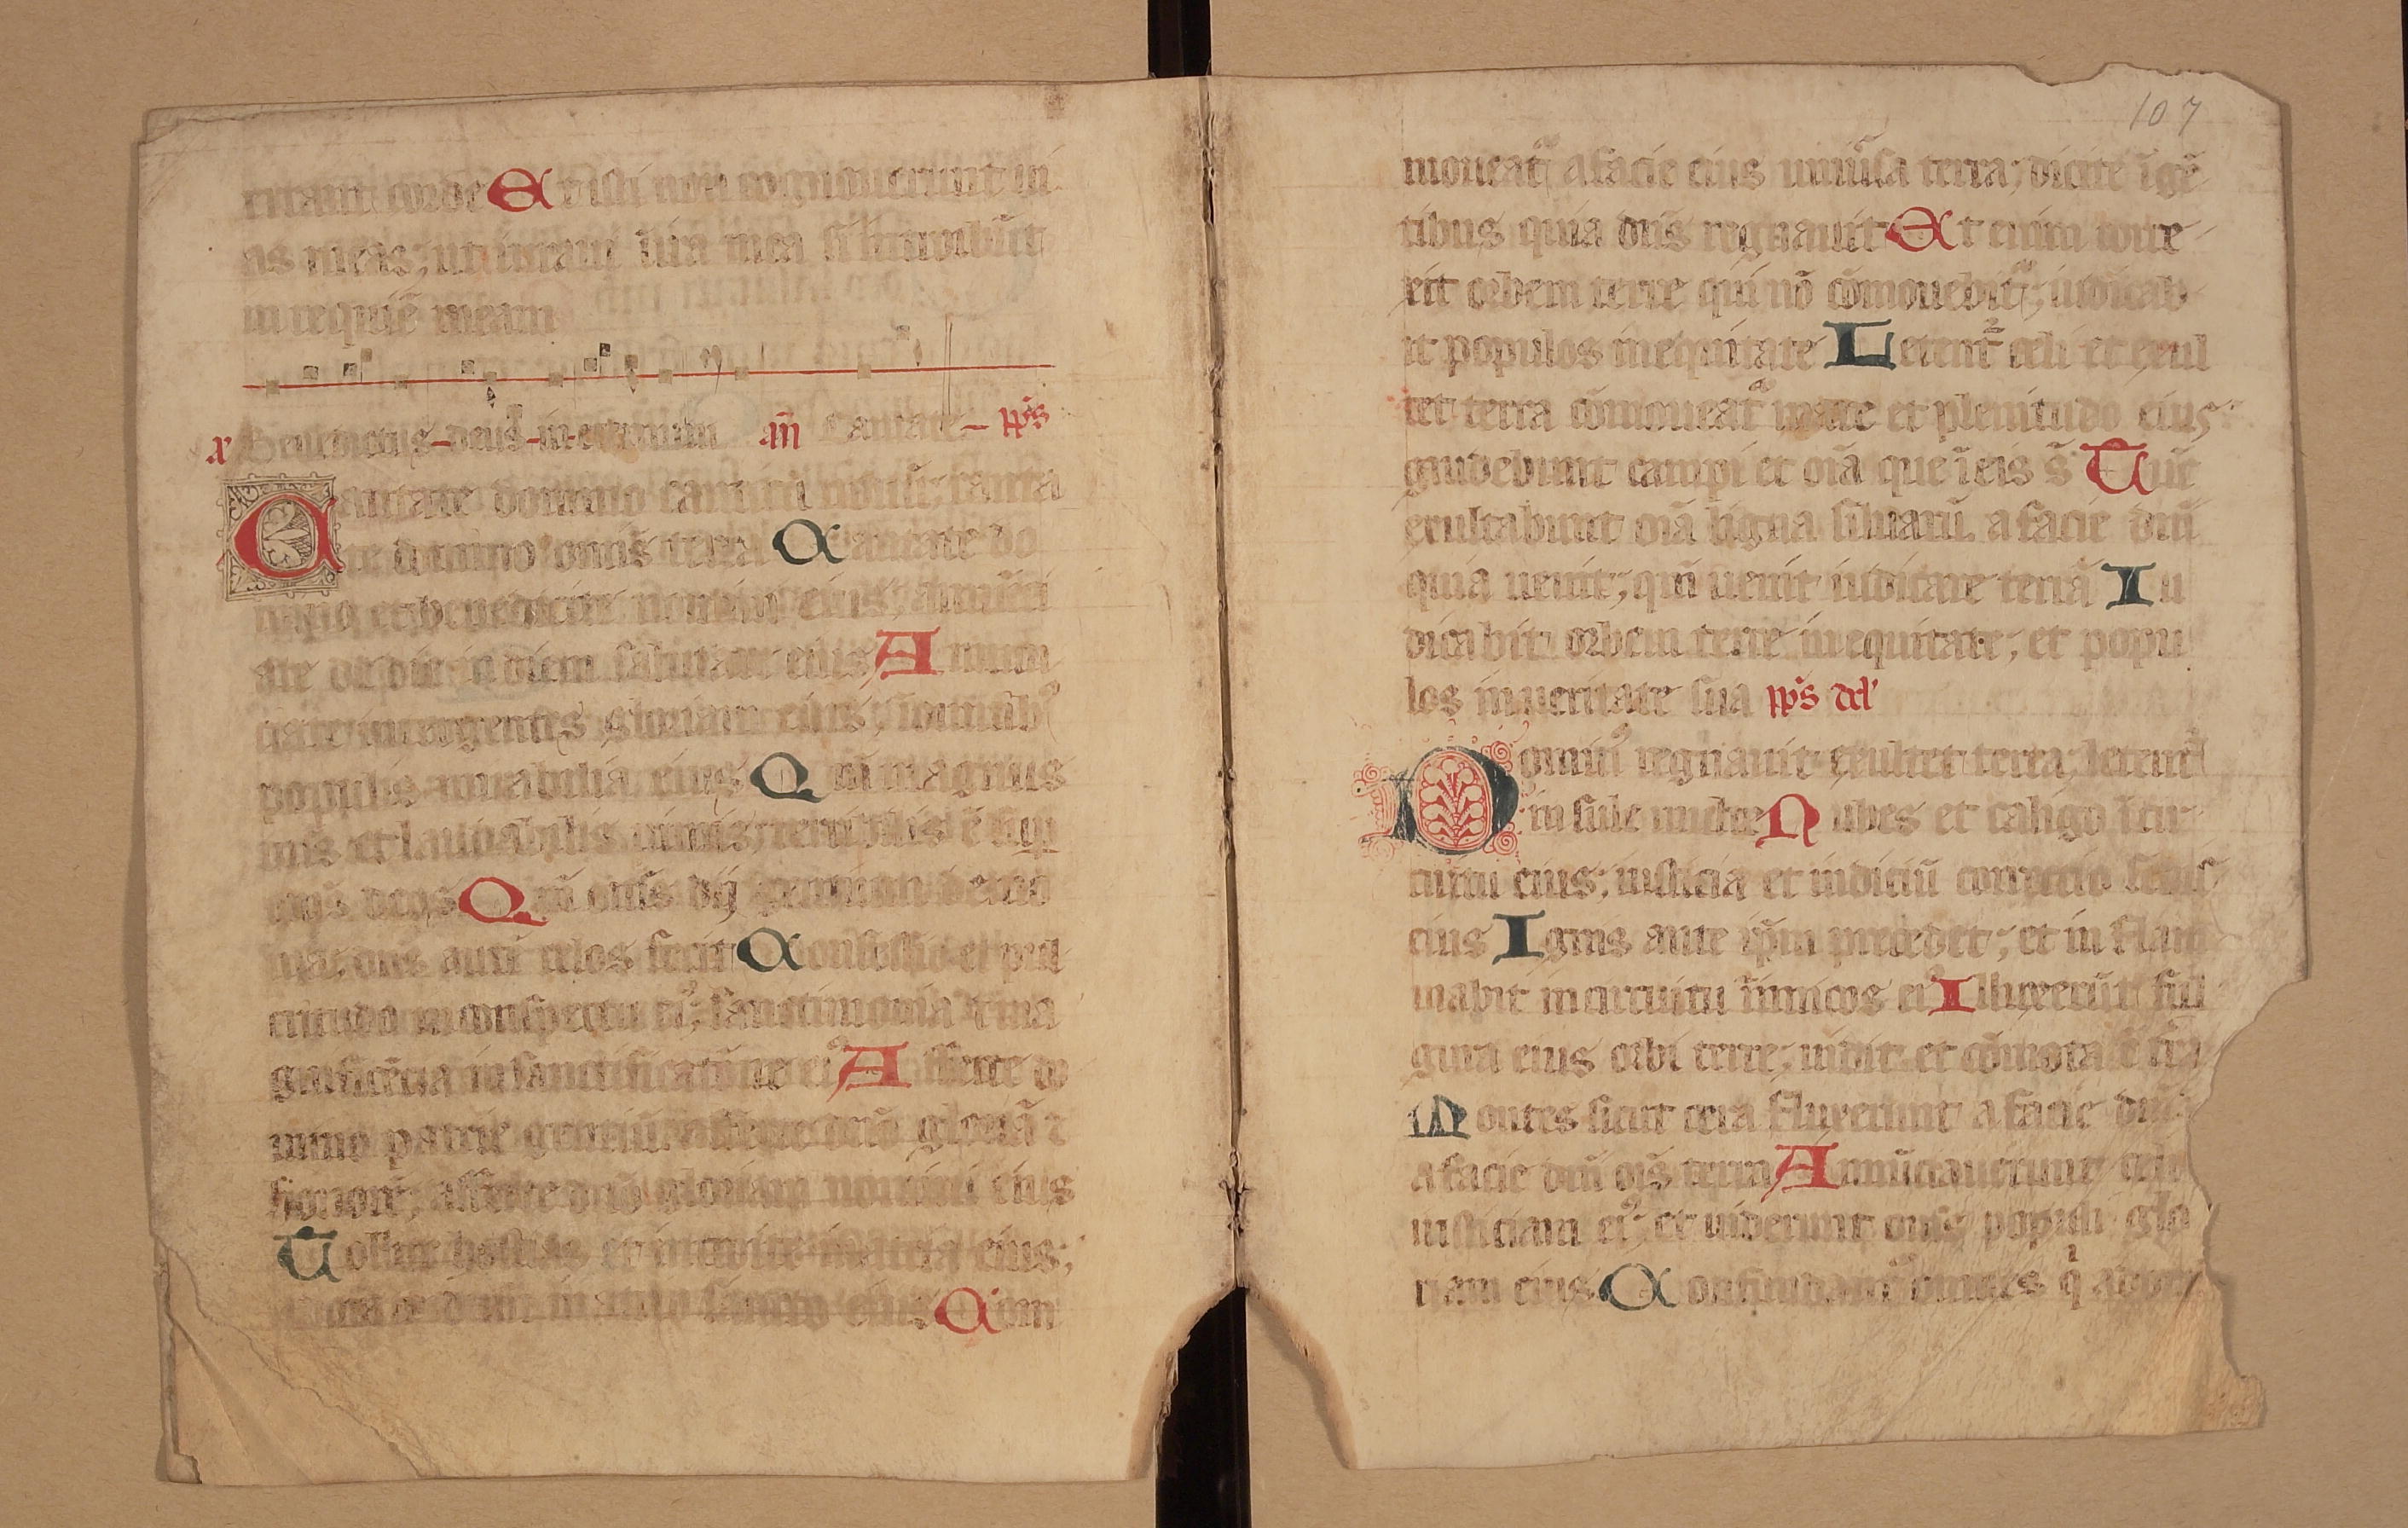 rrant corde Et isti non cognouerunt ui
as meas; ut iuraui ī ira mea si introibūt
in requiē meam
Benedictus deus in eternum añ Cantate ps̄
Cantate domino canticū nouū; canta
te domino omīs terra Cantate do
mino et benedicite nomini eius; annūci
ate de die in diem salutare eius Annun
ciate inter gentes gloriam eius; ī omnib⁹
populis mirabilia eius Qm̄ magnus
dn̄s et laudabilis nimis; terribilis ē sup
om̄s deos Qm̄ om̄s dij gentium demo
nia; dn̄s aut̄ celos fecit Confessio et pul
critudo in conspectu ei⁹; sanctimonia ⁊ ma
gnificēcia in sanctificatōne ei⁹ Afferte do
mino patrie gentiū afferte dn̄o gloriā ⁊
honorē; afferte dn̄o gloriam nomini eius
Tollite hostias et introite in atria eius;
adorate dn̄m in atrio sancto eius Com
107
moueat᷑ a facie eius uniu᷑sa terra; dicite ī gē
tibus quia dn̄s regnauit Et enim corre
xit orbem terre qui nō cōmouebit᷑; iudicab
it populos in equitate Letent᷑ celi et exul
tet terra cōmoueat᷑ mare et plenitudo eius
gaudebunt campi et om̄ia que ī eis s̄ Tūc
exultabunt om̄ia ligna siluarū a facie dn̄i
quia uenit; qm̄ uenit iudicare terrā Iu
dicabit orbem terre in equitate; et popu
los in ueritate sua ps̄ dd'
Dominus regnauit exultet terra; letent᷑
insule multe Nubes et caligo ī cir
cuitu eius; iusticia et iudiciū correctio sedis
eius Ignis ante ip̄m precedet; et in flam
mabit in circuitu inimicos ei⁹ Illuxerūt ful
gura eius orbi terre; uidit et cōmota ē t̄ra
Montes sicut cera fluxerunt a facie dn̄i
a facie dn̄i om̄is terra Annūciauerunt celi
iusticiam ei⁹; et uiderunt om̄s populi glo
riam eius Confundant᷑ omnes q̄ ador